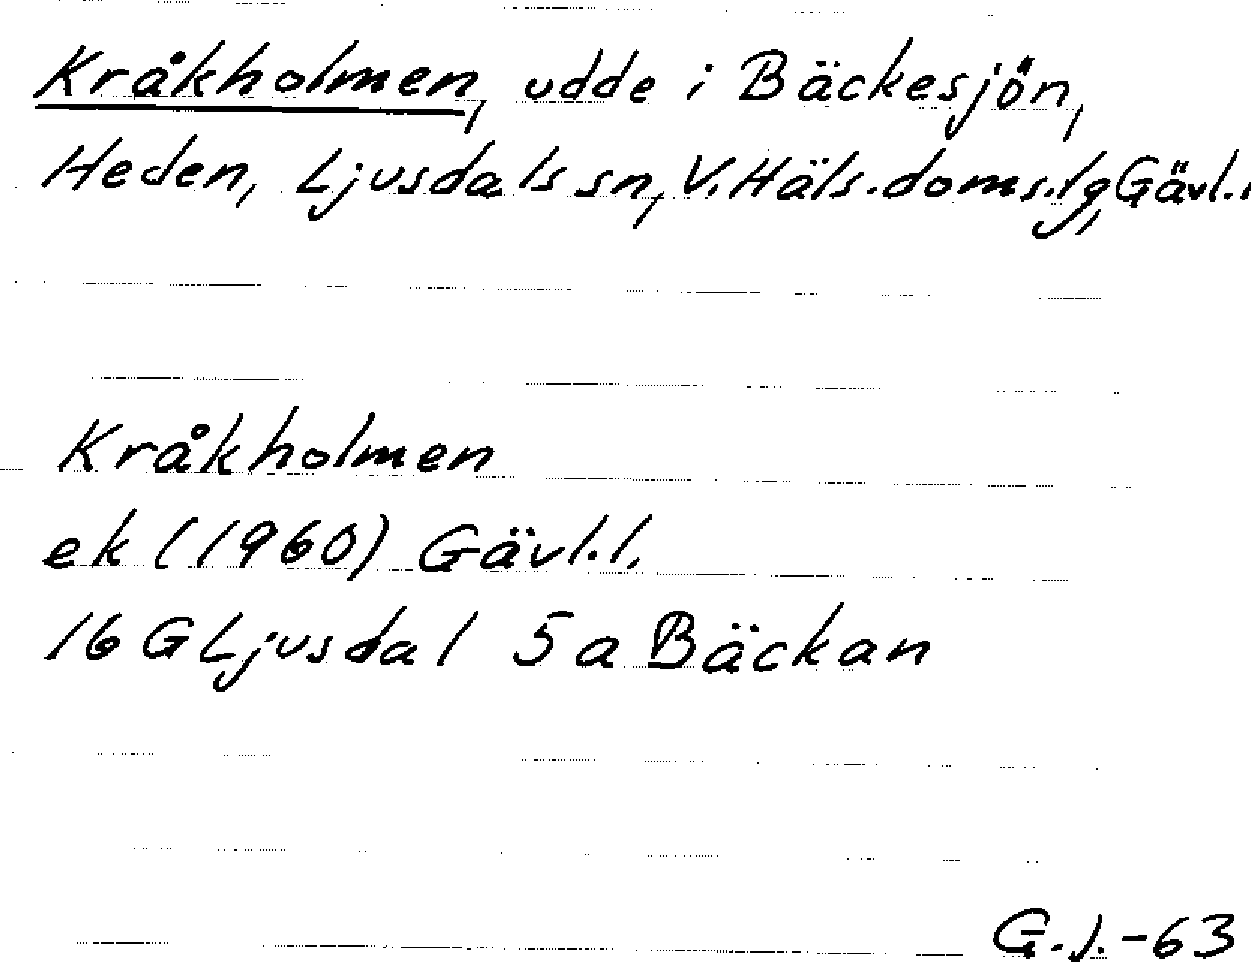 Kråkholmen, udde i Bäckesjön,
Heden, Ljusdals sn, V. Häls. doms.lg, Gävl.l
Kråkholmen
ek (1960) Gävl.l.
16 G Ljusdal 5a Bäckan
G.J.-63